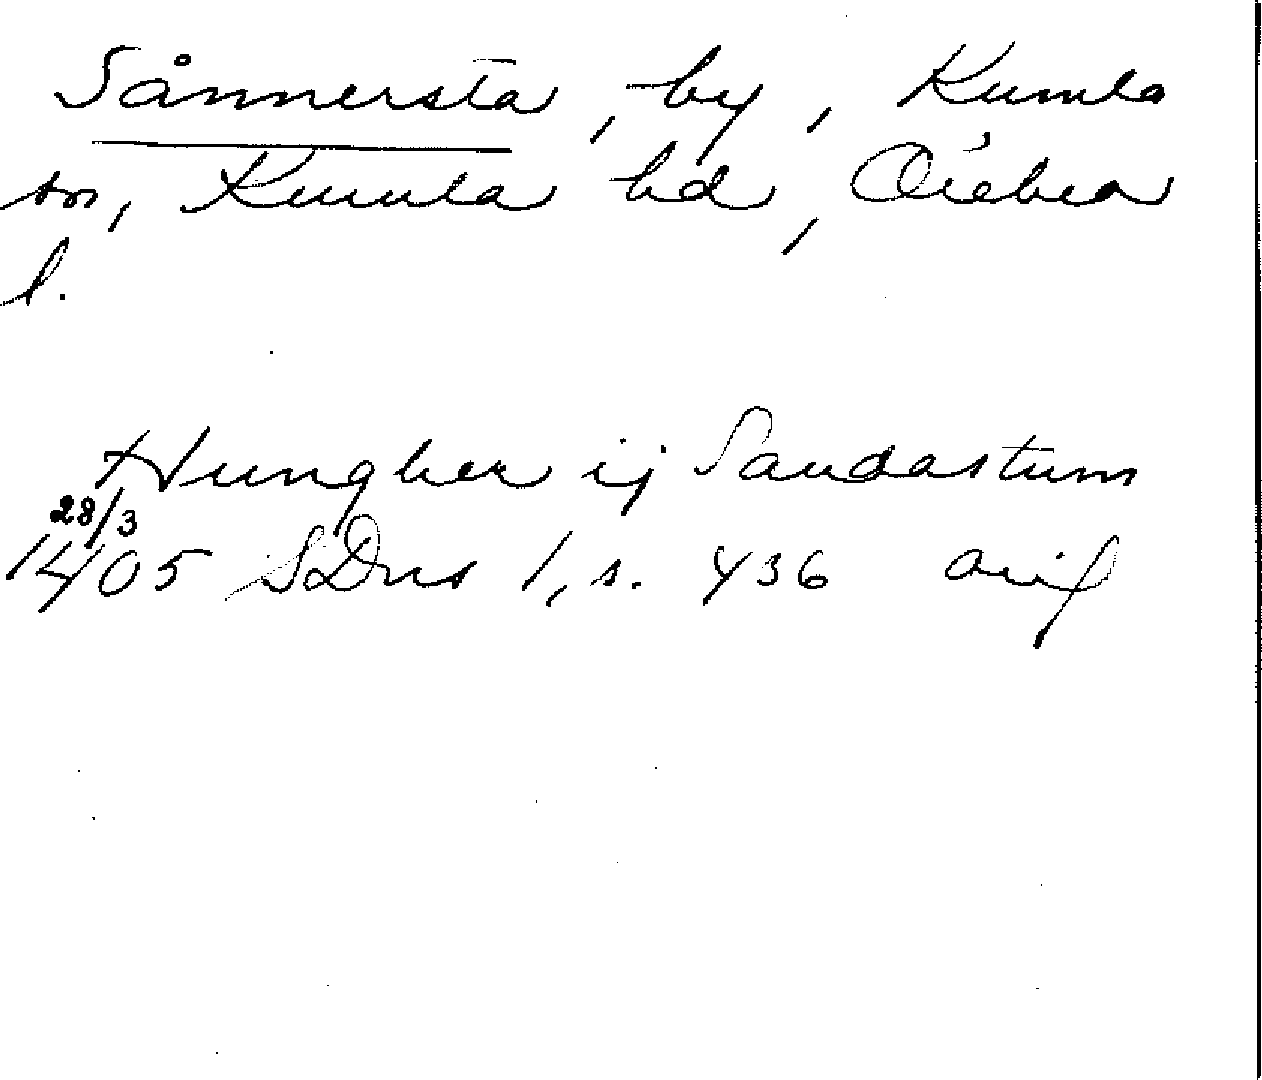 Sånnersta, by, Kumla
sn, Kumla hd, Örebro
l.
Hungher ij Sandastum
28/3
1405 SDns 1, s. 436 avif